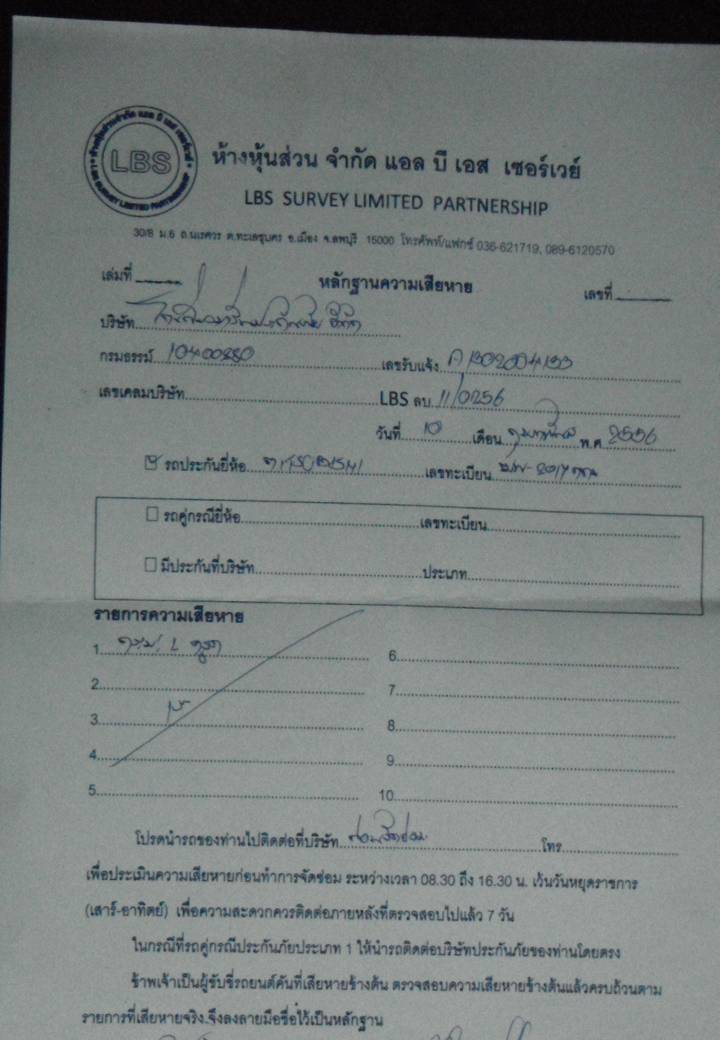 LBS
ห้างหุ้นส่วน จำกัด แอล บี เอส เซอร์เวย์
LBS SURVEY LIMITED PARTNERSHIP
30/8 ม.6 ถ.นเรศวร ต.ทะเลชุบศร อ.เมือง จ.ลพบุรี 15000 โทรศัพท์/แฟกซ์ 036-621719, 089-6120570
เล่มที่
หลักฐานความเสียหาย
เลขที่
บริษัท
กรมธรรม์ เลขรับแจ้ง
เลขเคลมบริษัท LBS ลบ. 11/0256
วันที่ 10 เดือน กุมภาพันธ์ พ.ศ. 2556
รถประกันยี่ห้อ เลขทะเบียน
รถคู่กรณียี่ห้อ เลขทะเบียน
มีประกันที่บริษัท ประเภท
รายการความเสียหาย
1. 6.
2. 7.
3. 8.
4. 9.
5. 10.
โปรดนำรถของท่านไปติดต่อที่บริษัท โทร
เพื่อประเมินความเสียหายก่อนทำการจัดซ่อม ระหว่างเวลา 08.30 ถึง 16.30 น. เว้นวันหยุดราชการ
(เสาร์-อาทิตย์) เพื่อความสะดวกควรติดต่อภายหลังที่ตรวจสอบไปแล้ว 7 วัน
ในกรณีที่รถคู่กรณีประกันภัยประเภท 1 ให้นำรถติดต่อบริษัทประกันภัยของท่านโดยตรง
ข้าพเจ้าเป็นผู้ขับขี่รถยนต์คันที่เสียหายข้างต้น ตรวจสอบความเสียหายข้างต้นแล้วครบถ้วนตาม
รายการที่เสียหายจริง จึงลงลายมือชื่อไว้เป็นหลักฐาน